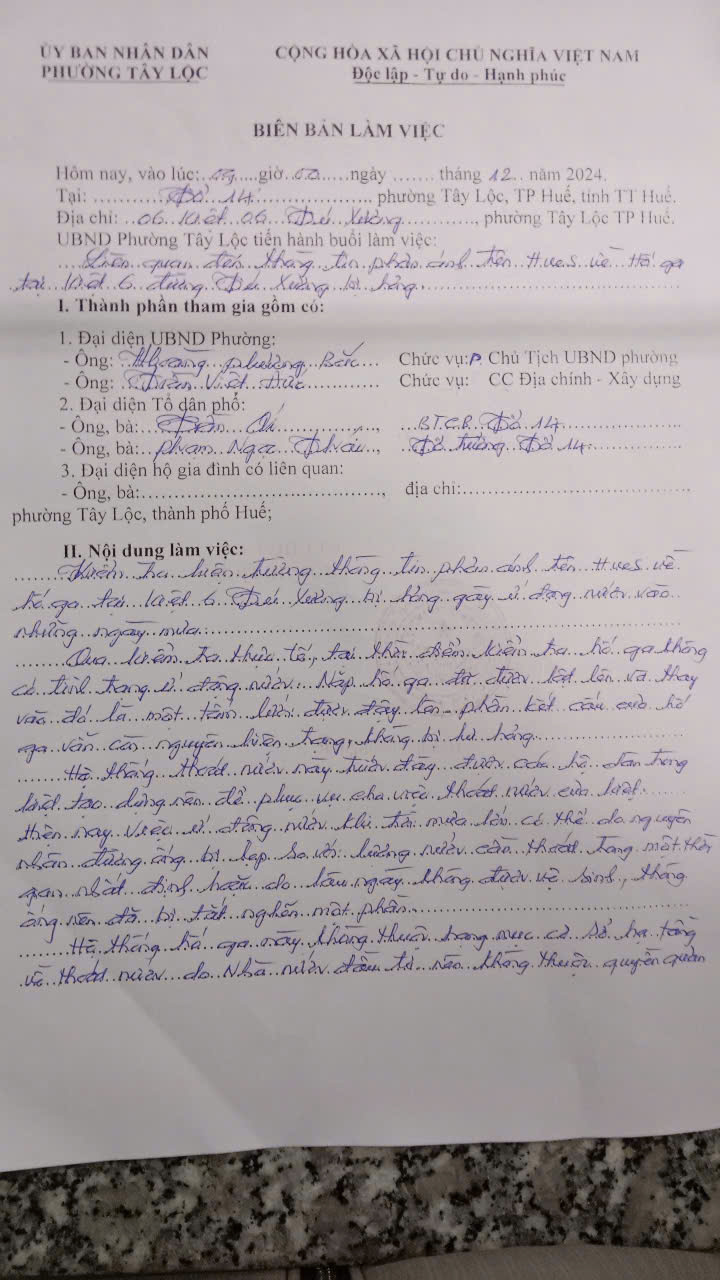 ỦY BAN NHÂN DÂN
PHƯỜNG TÂY LỘC
CỘNG HÒA XÃ HỘI CHỦ NGHĨA VIỆT NAM
Độc lập - Tự do - Hạnh phúc
BIÊN BẢN LÀM VIỆC
Hôm nay, vào lúc: 09 giờ 00 ngày ....... tháng 12 năm 2024.
Tại: Tổ 14 phường Tây Lộc, TP Huế, tỉnh TT Huế.
Địa chỉ: 06 kiệt 06 Xương, phường Tây Lộc TP Huế.
UBND Phường Tây Lộc tiến hành buổi làm việc:
Liên quan đến thông tin phản ánh trên HueS về Hố ga
tại kiệt 6 đường Xương bị hỏng.
I. Thành phần tham gia gồm có:
1. Đại diện UBND Phường:
- Ông: Hoàng Phương Bắc Chức vụ: P. Chủ Tịch UBND phường
- Ông: Trần Viết Chức vụ: CC Địa chính - Xây dựng
2. Đại diện Tổ dân phố:
- Ông, bà: Trần, BTCB Tổ 14
- Ông, bà: Phạm Ngọc, Tổ trưởng Tổ 14
3. Đại diện hộ gia đình có liên quan:
- Ông, bà:......................................, địa chỉ:....................................
phường Tây Lộc, thành phố Huế;
II. Nội dung làm việc:
Kiểm tra hiện trường thông tin phản ánh trên HueS về
hố ga tại kiệt 6 Xương bị hỏng gây ứ đọng nước vào
những ngày mưa.
Qua kiểm tra thực tế, tại thời điểm kiểm tra hố ga không
có tình trạng ứ đọng nước. Nắp hố ga đã được lật lên và thay
vào đó là một tấm lưới được đậy lên phần kết cấu của hố
ga vẫn còn nguyên hiện trạng, không bị hư hỏng.
Hệ thống thoát nước này trước đây được các hộ dân trong
kiệt tạo dựng nên để phục vụ cho việc thoát nước của kiệt.
Hiện nay việc ứ đọng nước khi trời mưa lớn có thể do nguyên
nhân đường ống bị hẹp so với lượng nước cần thoát trong một thời
gian nhất định hoặc do lâu ngày không được vệ sinh, thông
ống nên đã bị tắt nghẽn một phần.
Hệ thống hố ga này không thuộc hạng mục cơ sở hạ tầng
về thoát nước do Nhà nước đầu tư nên không thuộc quyền quản